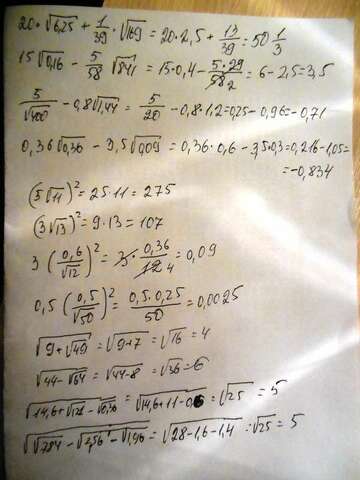 20·√6,25 + 1/39 · √169 = 20·2,5 + 13/39 = 50 1/3
15√0,16 − 5/58 √841 = 15·0,4 − 5·29/58 2 = 6 − 2,5 = 3,5
5/√400 − 0,8√1,44 = 5/20 − 0,8·1,2 = 0,25 − 0,96 = −0,71
0,36√0,36 − 3,5√0,09 = 0,36·0,6 − 3,5·0,3 = 0,216 − 1,05 =
= −0,834
(5√11)² = 25·11 = 275
(3√13)² = 9·13 = 107
3(0,6/√12)² = 3·0,36/12 4 = 0,09
0,5(0,5/√50)² = 0,5·0,25/50 = 0,0025
√(9+√49) = √(9+7) = √16 = 4
√(44−√64) = √(44−8) = √36 = 6
√(14,6+√121−√0,36) = √(14,6+11−0,6) = √25 = 5
√(√784−√2,56−√1,96) = √(28−1,6−1,4) = √25 = 5